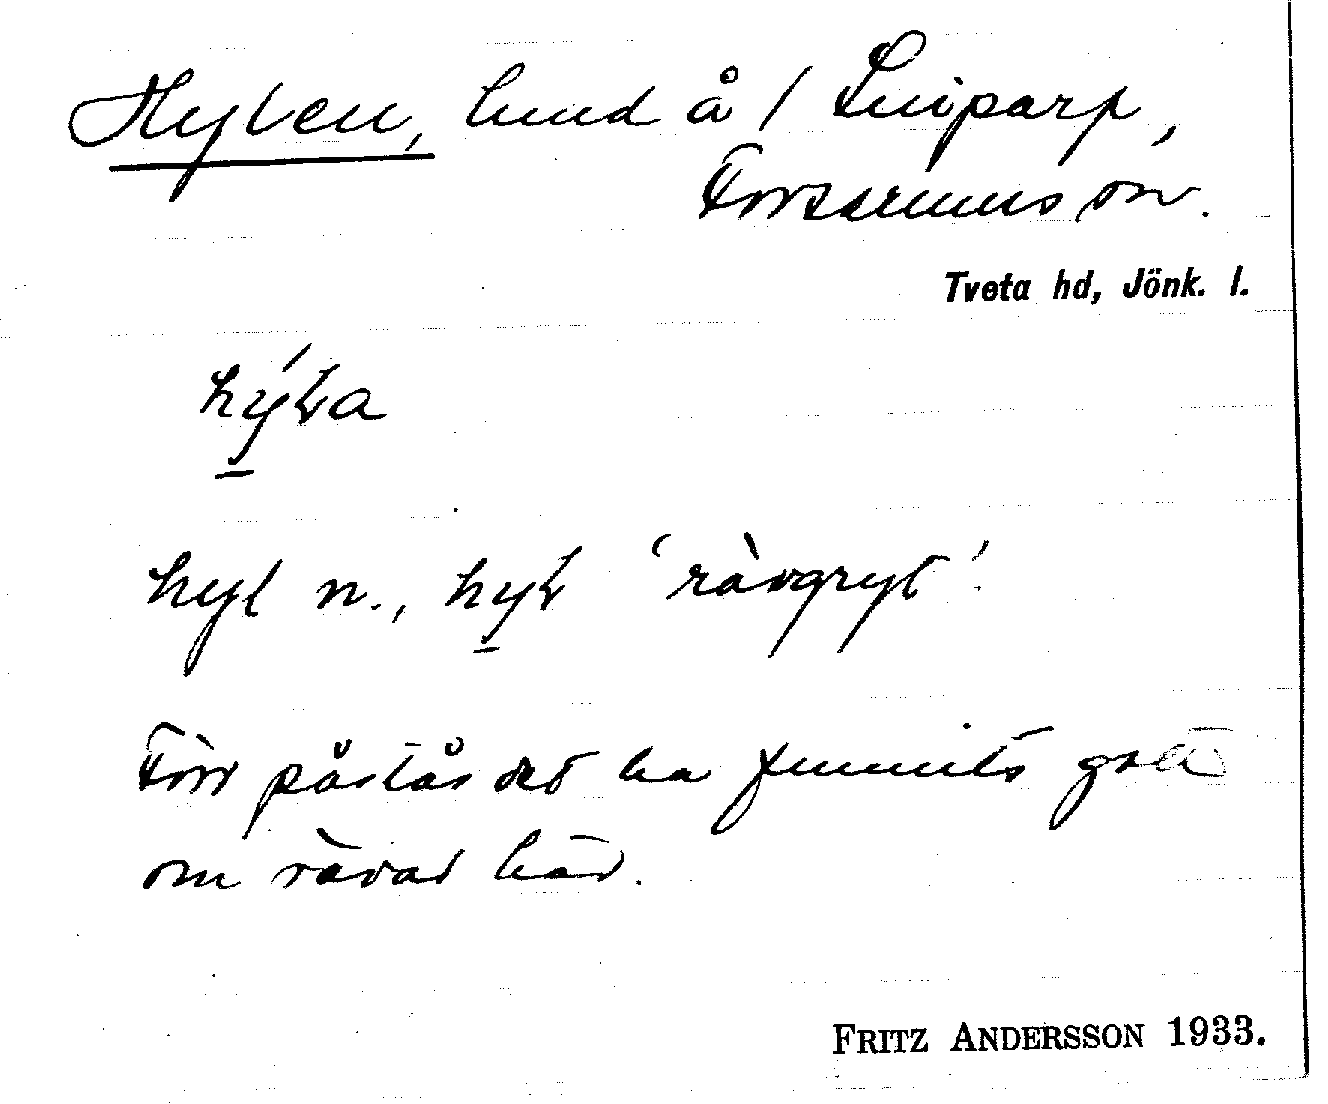 Hyten, lund å / Luiparp,
Forserums sn.
Tveta hd, Jönk. l.
hýta
hyt n., hyt 'rävgryt'.
Förr påstås det ha funnits gott
om rävar här.
FRITZ ANDERSSON 1933.